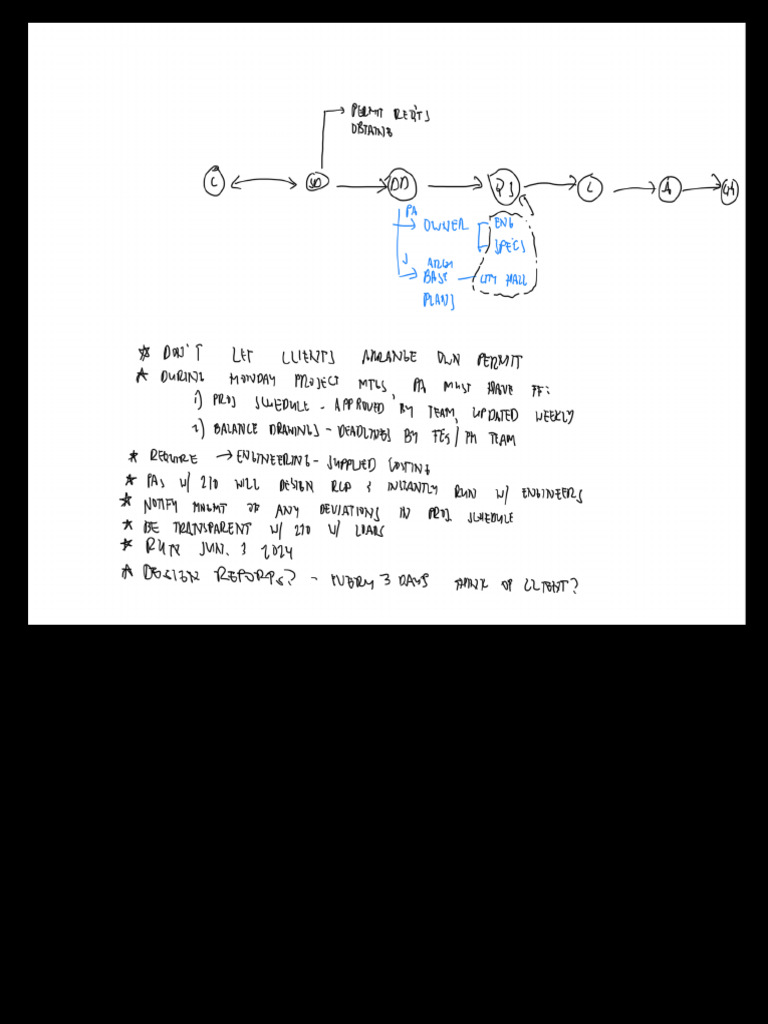 PERMIT REQ'TS
OBTAINED
C
SD
DD
C
PA
OWNER
ENG
SPECS
BASE
CITY HALL
PLANS
* DON'T LET CLIENTS ARRANGE OWN PERMIT
* DURING MONDAY PROJECT MTGS, PA MUST HAVE FF:
1) PROJ SCHEDULE - APPROVED BY TEAM, UPDATED WEEKLY
2) BALANCE DRAWINGS - DEADLINES BY TEAM
* REQUIRE → ENGINEERING - SUPPLIED COSTING
* PAS W/ WILL DESIGN RCP & INSTANTLY RUN W/ ENGINEERS
* NOTIFY MNGMT OF ANY DEVIATIONS IN PROJ. SCHEDULE
* BE TRANSPARENT W/ W/
* RUN JUN. 3 2024
* DESIGN - EVERY 3 DAYS OF CLIENT?